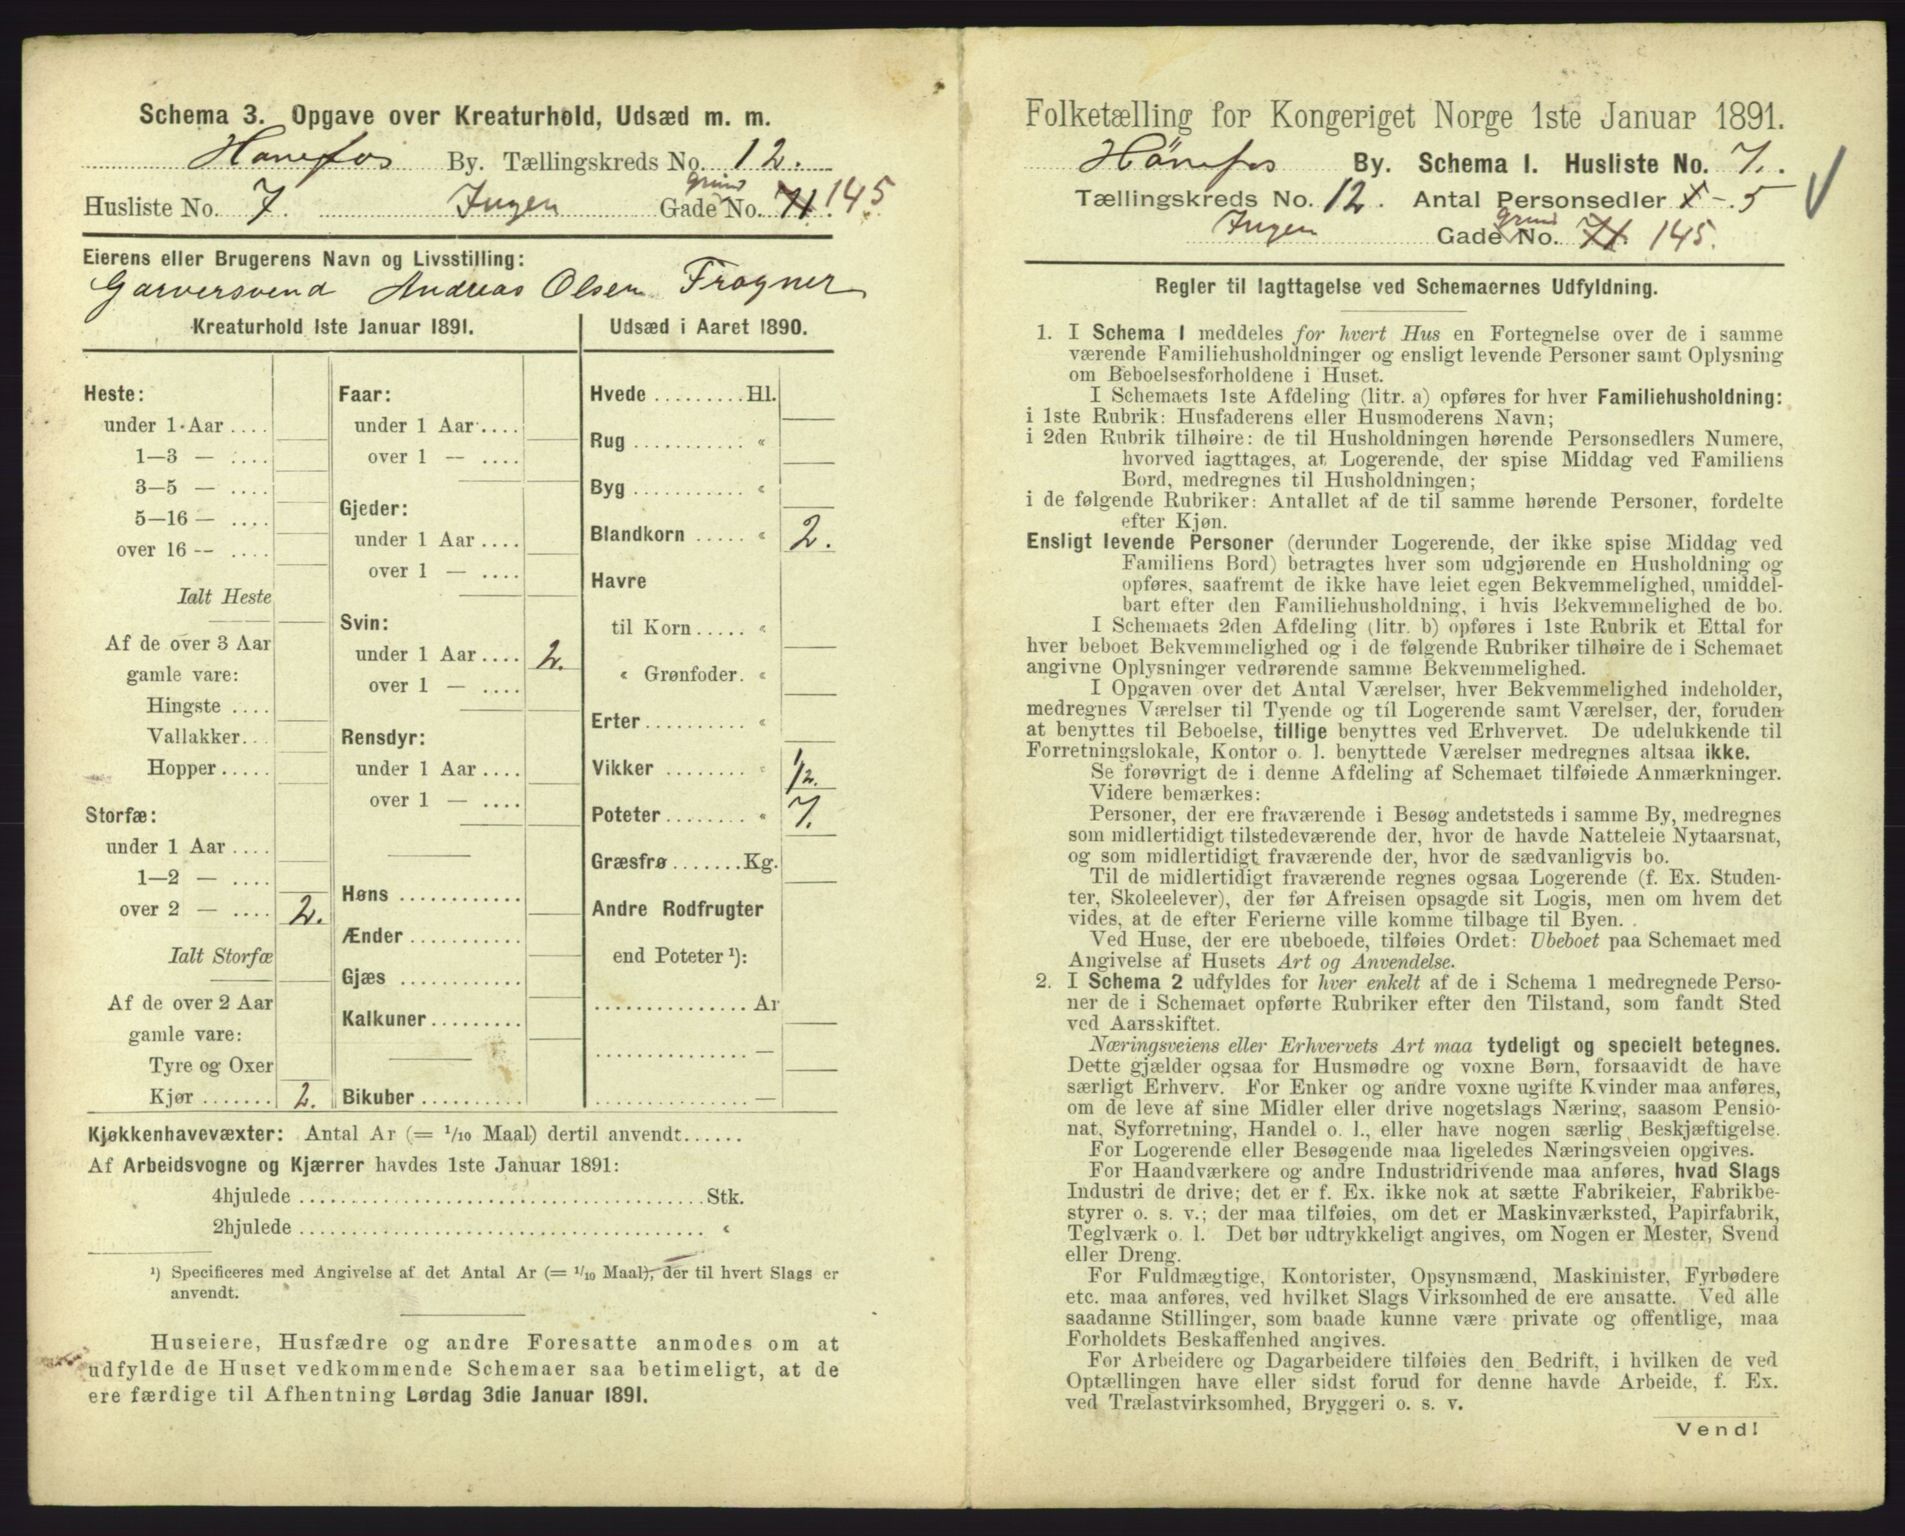 Schema 3. Opgave over Kreaturhold, Udsæd m. m.
Hønefos By. Tællingskreds No. 12.
Husliste No. 7. Ingen Gade grund No. 71. 145.
Eierens eller Brugerens Navn og Livsstilling:
Garversvend Andreas Olsen Frogner
Kreaturhold 1ste Januar 1891.
Heste:
under 1 Aar ....
1—3 — ....
3—5 — ....
5—16 — ....
over 16 — ....
Ialt Heste
Af de over 3 Aar
gamle vare:
Hingste ....
Vallakker...
Hopper .....
Storfæ:
under 1 Aar ....
1—2 — ....
over 2 — .... 2.
Ialt Storfæ
Af de over 2 Aar
gamle vare:
Tyre og Oxer
Kjør ....... 2.
Faar:
under 1 Aar ....
over 1 — ....
Gjeder:
under 1 Aar ....
over 1 — ....
Svin:
under 1 Aar .... 2.
over 1 — ....
Rensdyr:
under 1 Aar ....
over 1 — ....
Høns ............
Ænder ...........
Gjæs ............
Kalkuner.........
Bikuber ..........
Udsæd i Aaret 1890.
Hvede ......... Hl.
Rug ........... "
Byg ............ "
Blandkorn ..... " 2.
Havre
til Korn ..... "
" Grønfoder. "
Erter.......... "
Vikker ........ " 1/2.
Poteter........ " 7.
Græsfrø .......Kg.
Andre Rodfrugter
end Poteter ¹):
............... Ar
............... —
............... —
Kjøkkenhavevæxter: Antal Ar (= 1/10 Maal) dertil anvendt......
Af Arbeidsvogne og Kjærrer havdes 1ste Januar 1891:
4hjulede ........................................ Stk.
2hjulede ........................................ "
¹) Specificeres med Angivelse af det Antal Ar (= 1/10 Maal), der til hvert Slags er
anvendt.
Huseiere, Husfædre og andre Foresatte anmodes om at
udfylde de Huset vedkommende Schemaer saa betimeligt, at de
ere færdige til Afhentning Lørdag 3die Januar 1891.
Folketælling for Kongeriget Norge 1ste Januar 1891.
Hønefos By. Schema 1. Husliste No. 7.
Tællingskreds No. 12. Antal Personsedler 5
Ingen Gade grund No. 71. 145.
Regler til Iagttagelse ved Schemaernes Udfyldning.
1. I Schema 1 meddeles for hvert Hus en Fortegnelse over de i samme
værende Familiehusholdninger og ensligt levende Personer samt Oplysning
om Beboelsesforholdene i Huset.
I Schemaets 1ste Afdeling (litr. a) opføres for hver Familiehusholdning:
i 1ste Rubrik: Husfaderens eller Husmoderens Navn;
i 2den Rubrik tilhøire: de til Husholdningen hørende Personsedlers Numere,
hvorved iagttages, at Logerende, der spise Middag ved Familiens
Bord, medregnes til Husholdningen;
i de følgende Rubriker: Antallet af de til samme hørende Personer, fordelte
efter Kjøn.
Ensligt levende Personer (derunder Logerende, der ikke spise Middag ved
Familiens Bord) betragtes hver som udgjørende en Husholdning og
opføres, saafremt de ikke have leiet egen Bekvemmelighed, umiddel-
bart efter den Familiehusholdning, i hvis Bekvemmelighed de bo.
I Schemaets 2den Afdeling (litr. b) opføres i 1ste Rubrik et Ettal for
hver beboet Bekvemmelighed og i de følgende Rubriker tilhøire de i Schemaet
angivne Oplysninger vedrørende samme Bekvemmelighed.
I Opgaven over det Antal Værelser, hver Bekvemmelighed indeholder,
medregnes Værelser til Tyende og til Logerende samt Værelser, der, foruden
at benyttes til Beboelse, tillige benyttes ved Erhvervet. De udelukkende til
Forretningslokale, Kontor o. l. benyttede Værelser medregnes altsaa ikke.
Se forøvrigt de i denne Afdeling af Schemaet tilføiede Anmærkninger.
Videre bemærkes:
Personer, der ere fraværende i Besøg andetsteds i samme By, medregnes
som midlertidigt tilstedeværende der, hvor de havde Natteleie Nytaarsnat,
og som midlertidigt fraværende der, hvor de sædvanligvis bo.
Til de midlertidigt fraværende regnes ogsaa Logerende (f. Ex. Studen-
ter, Skoleelever), der før Afreisen opsagde sit Logis, men om hvem det
vides, at de efter Ferierne ville komme tilbage til Byen.
Ved Huse, der ere ubeboede, tilføies Ordet: Ubeboet paa Schemaet med
Angivelse af Husets Art og Anvendelse.
2. I Schema 2 udfyldes for hver enkelt af de i Schema 1 medregnede Perso-
ner de i Schemaet opførte Rubriker efter den Tilstand, som fandt Sted
ved Aarsskiftet.
Næringsveiens eller Erhvervets Art maa tydeligt og specielt betegnes.
Dette gjælder ogsaa for Husmødre og voxne Børn, forsaavidt de have
særligt Erhverv. For Enker og andre voxne ugifte Kvinder maa anføres,
om de leve af sine Midler eller drive nogetslags Næring, saasom Pensio-
nat, Syforretning, Handel o. l., eller have nogen særlig Beskjæftigelse.
For Logerende eller Besøgende maa ligeledes Næringsveien opgives.
For Haandværkere og andre Industridrivende maa anføres, hvad Slags
Industri de drive; det er f. Ex. ikke nok at sætte Fabrikeier, Fabrikbe-
styrer o. s. v.; der maa tilføies, om det er Maskinværksted, Papirfabrik,
Teglværk o. l. Det bør udtrykkeligt angives, om Nogen er Mester, Svend
eller Dreng.
For Fuldmægtige, Kontorister, Opsynsmænd, Maskinister, Fyrbødere
etc. maa anføres, ved hvilket Slags Virksomhed de ere ansatte. Ved alle
saadanne Stillinger, som baade kunne være private og offentlige, maa
Forholdets Beskaffenhed angives.
For Arbeidere og Dagarbeidere tilføies den Bedrift, i hvilken de ved
Optællingen have eller sidst forud for denne havde Arbeide, f. Ex.
ved Trælastvirksomhed, Bryggeri o. s. v.
Vend!